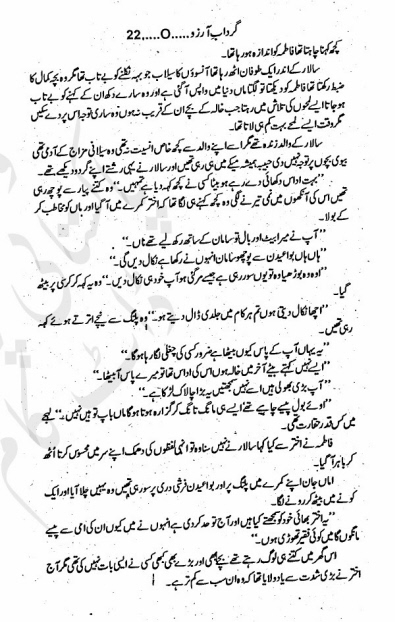 گرداب آرزو.....O.....22
کچھ کہنا چاہتا تھا فاطمہ کو اندازہ ہو رہا تھا۔
سالار کے اندر ایک طوفان اٹھ رہا تھا آنسوؤں کا سیلاب جو بہہ نکلنے کو بے تاب تھا مگر وہ بچہ کمال کا
ضبط رکھتا تھا فاطمہ کو دیکھتا تو لگتا ماں دنیا میں واپس آ گئی ہے اور وہ سارے دکھ ان کے کہنے کو بے تاب
ہو جاتا ایسے لمحوں کی تلاش میں رہتا جب خالہ کے بچے ان کے قریب نہ ہوں وہ ساری توجہ اس پر دے سکیں
مگر وقت ایسے لمحے بہت کم ہی لاتا تھا۔
سالار کے والد زندہ تھے مگر اسے اپنے والد سے کچھ خاص انسیت نہ تھی وہ سیلانی مزاج کے آدمی تھی
بیوی بچوں پر توجہ نہیں دی حبیبہ ہمیشہ میکے میں ہی رہی تھیں اور سالار نے یہی رشتے اپنے گرد دیکھے تھے۔
”بہت اداس دکھائی دے رہے ہو بیٹا کسی نے کچھ کہہ دیا ہے تمہیں۔“ وہ کتنے پیار سے پوچھ رہی
تھیں اس کی آنکھوں میں نمی تیرنے لگی وہ کچھ کہنے ہی لگا تھا کہ اختر کمرے میں آ گیا اور ماں کو مخاطب کر
کے بولا۔
”آپ نے میرا بیٹ اور بال تو سامان کے ساتھ رکھ لیے تھے ناں۔“
”ہاں ہاں بوا عیدن سے پوچھو سامان انہوں نے رکھا ہے نکال دیں گی۔“
”اوہ وہ بوڑھیا وہ تو یوں سو رہی ہے جیسے مر گئی ہو آپ خود ہی نکال دیں۔“ وہ یہ کہہ کر کرسی پر بیٹھ
گیا۔
”اچھا نکال دیتی ہوں تم ہر کام میں جلدی ڈال دیتے ہو۔“ وہ پلنگ سے نیچے اترتے ہوئے کہہ
رہی تھیں۔
”یہ یہاں آپ کے پاس کیوں بیٹھا ہے ضرور کسی کی چغلی لگا رہا ہوگا۔“
”ایسے نہیں کہتے بیٹے آخر میں خالہ ہوں اس کی اداس تھا تو میرے پاس آ بیٹھا۔“
”آپ بڑی بھولی ہیں اسے نہیں سمجھتیں یہ بڑا چالاک لڑکا ہے۔“
”اوئے بول پیسے چاہیے تھے ایسے ہی مانگ تانگ کر گزارہ ہوتا ہوگا ماں باپ تو ہیں نہیں۔“ لہجے
میں کس قدر حقارت تھی۔
فاطمہ نے اختر سے کیا کہا سالار نے نہیں سنا وہ تو انھی لفظوں کی دھمک اپنے سر میں محسوس کرتا اٹھ
کر باہر آ گیا۔
اماں جان اپنے کمرے میں پلنگ پر اور بوا عیدن فرشی دری پر سو رہی تھیں وہ یہیں چلا آیا اور ایک
کونے میں بیٹھ کر رونے لگا۔
”یہ اختر بھائی خود کو سمجھتے کیا ہیں اور آج تو حد کر دی ہے انہوں نے میں کیوں ان کی امی سے پیسے
مانگوں گا میں کوئی فقیر تھوڑی ہوں۔“
اس گھر میں کتنے ہی لوگ رہتے تھے بچے بھی اور بڑے بھی کبھی کسی نے ایسی بات نہیں کی تھی مگر آج
اختر نے بڑی شدت سے یاد دلایا تھا کہ وہ ان سب سے کم تر ہے۔